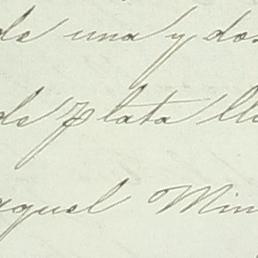 de una y dos
de plata ll
aquel Min